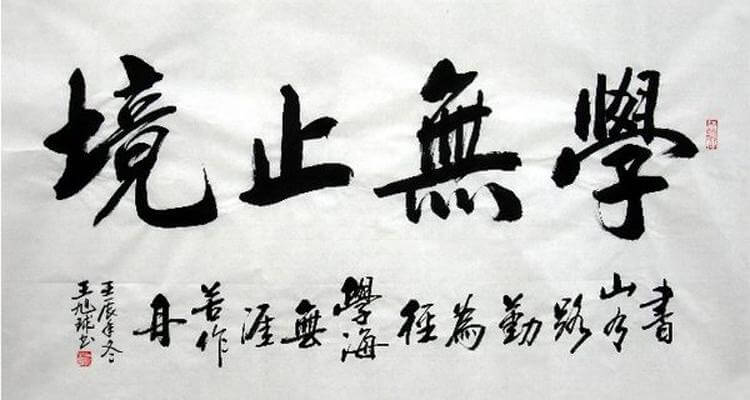 學無止境
書山有路勤為徑學海無涯苦作舟
壬辰年冬
王旭球书